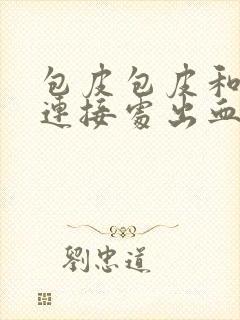 包皮包皮和
連接處出血
劉忠道